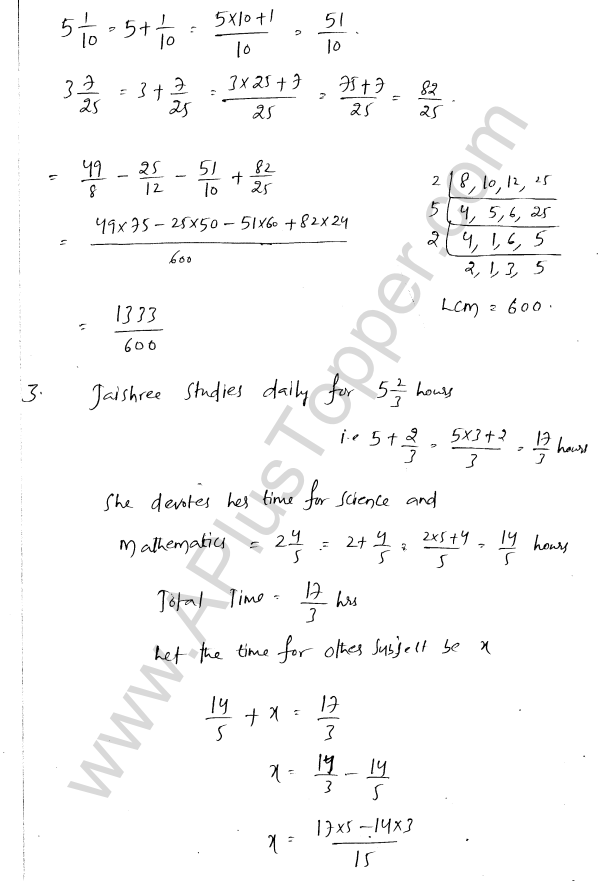 5 1/10 = 5 + 1/10 = (5×10+1)/10 = 51/10.
3 7/25 = 3 + 7/25 = (3×25+7)/25 = (75+7)/25 = 82/25.
= 49/8 − 25/12 − 51/10 + 82/25
= (49×75 − 25×50 − 51×60 + 82×24)/600
= 1333/600
2 | 8, 10, 12, 25
5 | 4, 5, 6, 25
2 | 4, 1, 6, 5
2, 1, 3, 5
LCM = 600.
3. Jaishree studies daily for 5 2/3 hours
i.e 5 + 2/3 = (5×3+2)/3 = 17/3 hours
She devotes her time for science and
Mathematics = 2 4/5 = 2 + 4/5 = (2×5+4)/5 = 14/5 hours
Total Time = 17/3 hrs
Let the time for other subject be x
14/5 + x = 17/3
x = 17/3 − 14/5
x = (17×5 − 14×3)/15.
www.APlusTopper.com